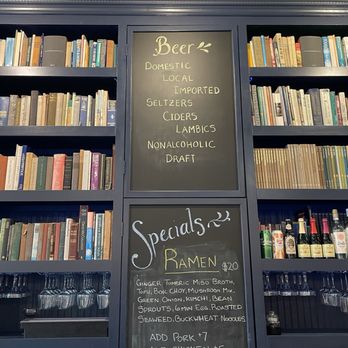 Beer
Domestic
Local
Imported
Seltzers
Ciders
Lambics
Nonalcoholic
Draft
Specials
Ramen $20
Ginger Tumeric Miso Broth,
Tofu, Bok Choy, Mushroom Mix,
Green Onion, Kimchi, Bean
Sprouts, 6min Egg, Roasted
Seaweed, Buckwheat Noodles
Add Pork $7